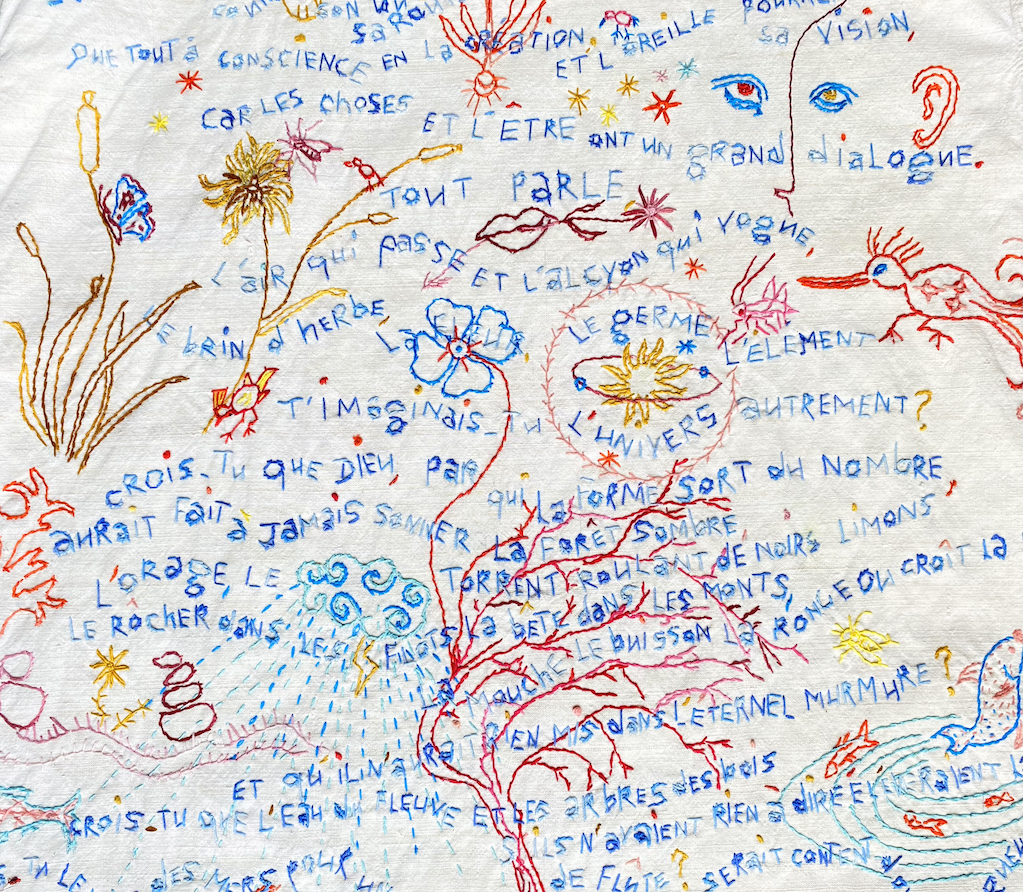 SON
QUE TOUT À CONSCIENCE EN LA CRÉATION. ET L'OREILLE POURRAIT
SA VISION,
CAR LES CHOSES ET L'ÊTRE ONT UN GRAND DIALOGUE.
TOUT PARLE,
L'AIR QUI PASSE ET L'ALCYON QUI VOGUE,
LE BRIN D'HERBE LA FLEUR LE GERME L'ÉLÉMENT
T'IMAGINAIS-TU L'UNIVERS AUTREMENT?
CROIS-TU QUE DIEU, PAR QUI LA FORME SORT DU NOMBRE,
AURAIT FAIT À JAMAIS SONNER LA FORÊT SOMBRE,
L'ORAGE, LE TORRENT ROULANT DE NOIRS LIMONS
LE ROCHER DANS LES FLOTS LA BÊTE DANS LES MONTS,
LA MOUCHE, LE BUISSON LA RONCE OÙ CROÎT LA
ET QU'IL N'AURAIT RIEN MIS DANS L'ÉTERNEL MURMURE?
CROIS-TU QUE L'EAU DU FLEUVE ET LES ARBRES DES BOIS
S'ILS N'AVAIENT RIEN À DIRE ÉLÈVERAIENT
TU LE DES MERS POUR DE FLÛTE? SERAIT CONTENT